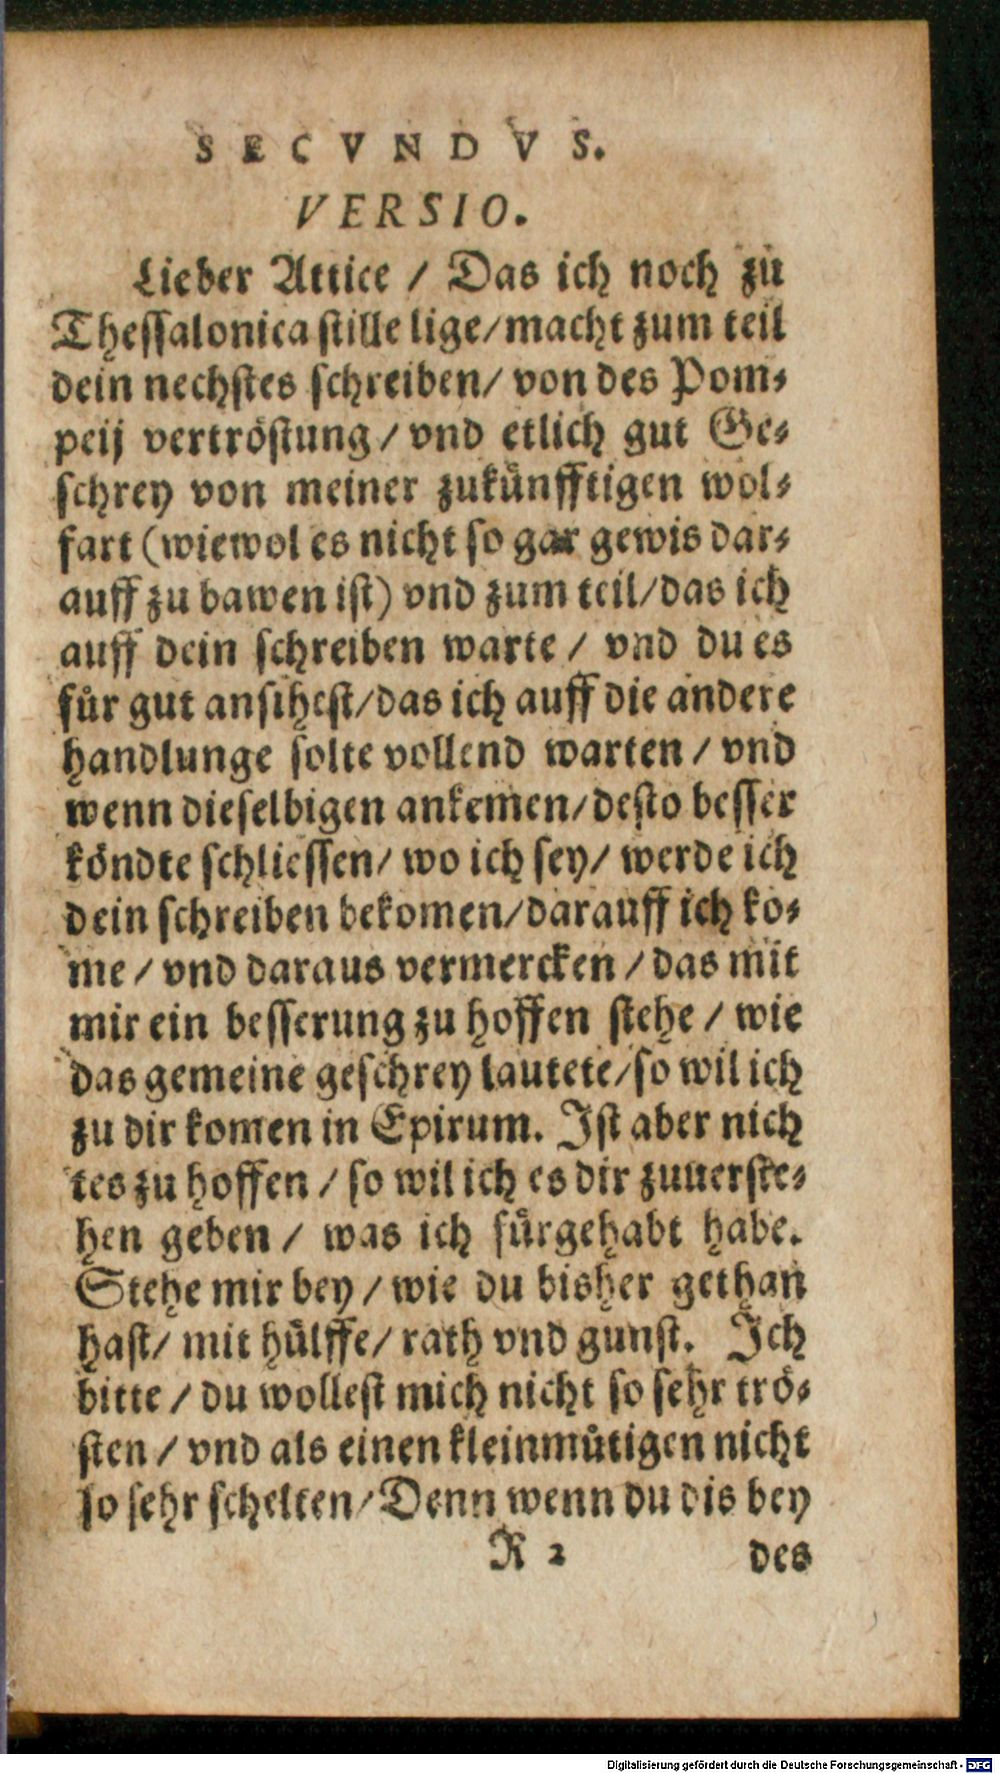 SECVNDVS.
VERSIO.
Lieber Attice / Das ich noch zu
Thessalonica stille lige/macht zum teil
dein nechstes schreiben/ von des Pom⸗
peij vertröstung / vnd etlich gut Ge⸗
schrey von meiner zukünfftigen wol⸗
fart (wiewol es nicht so gar gewis dar⸗
auff zu bawen ist) vnd zum teil/das ich
auff dein schreiben warte / vnd du es
für gut ansihest/das ich auff die andere
handlunge solte vollend warten / vnd
wenn dieselbigen ankemen/desto besser
köndte schliessen/ wo ich sey/ werde ich
dein schreiben bekomen/darauff ich ko⸗
me / vnd daraus vermercken / das mit
mir ein besserung zu hoffen stehe / wie
das gemeine geschrey lautete/so wil ich
zu dir komen in Epirum. Ist aber nich
tes zu hoffen / so wil ich es dir zuuerste⸗
hen geben / was ich fürgehabt habe.
Stehe mir bey / wie du bisher gethan
hast/ mit hülffe/ rath vnd gunst. Ich
bitte / du wollest mich nicht so sehr trö⸗
sten / vnd als einen kleinmütigen nicht
so sehr schelten/Denn wenn du dis bey
R 2 des
Digitalisierung gefördert durch die Deutsche Forschungsgemeinschaft - DFG